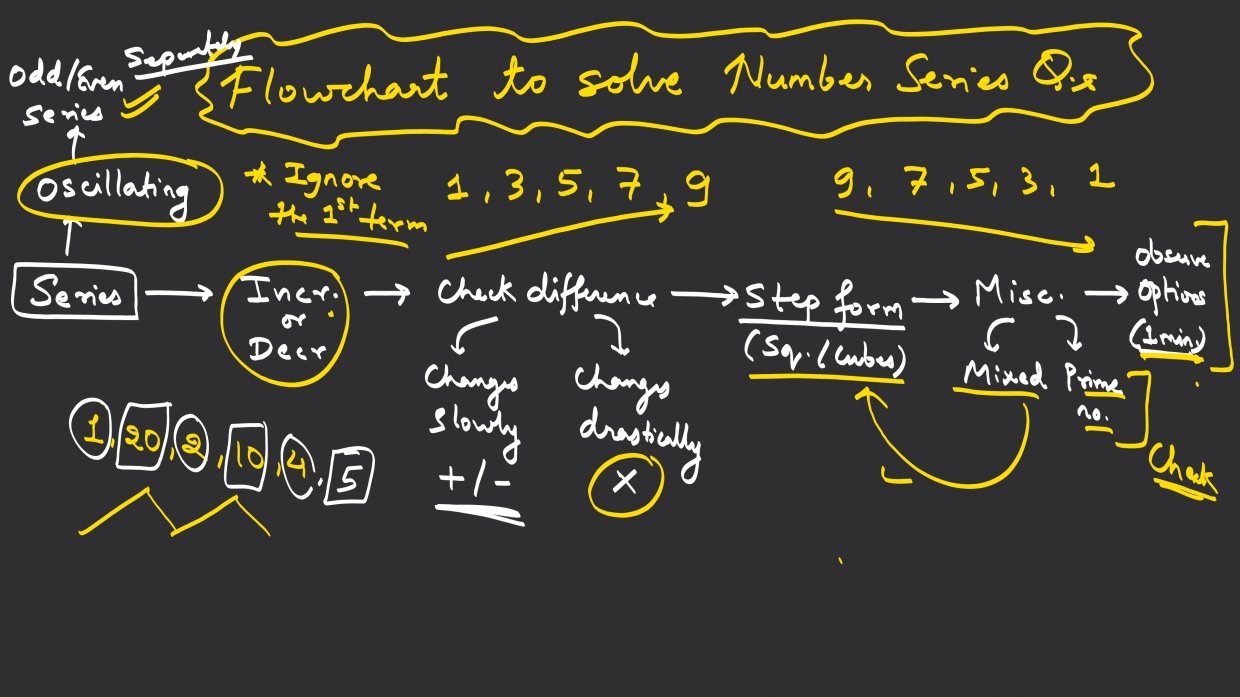 Flowchart to solve Number Series Q.s
Separately
Odd/Even
Series
Oscillating
* Ignore
the 1st term
1, 3, 5, 7, 9
9, 7, 5, 3, 1
Series
Incr.
or
Decr
Check difference
Changes
slowly
+/-
Changes
drastically
×
Step form
(Sq./Cubes)
Misc.
Mixed
Prime
no.
Check
Observe
Options
(1 min.)
1, 20, 2, 10, 4, 5